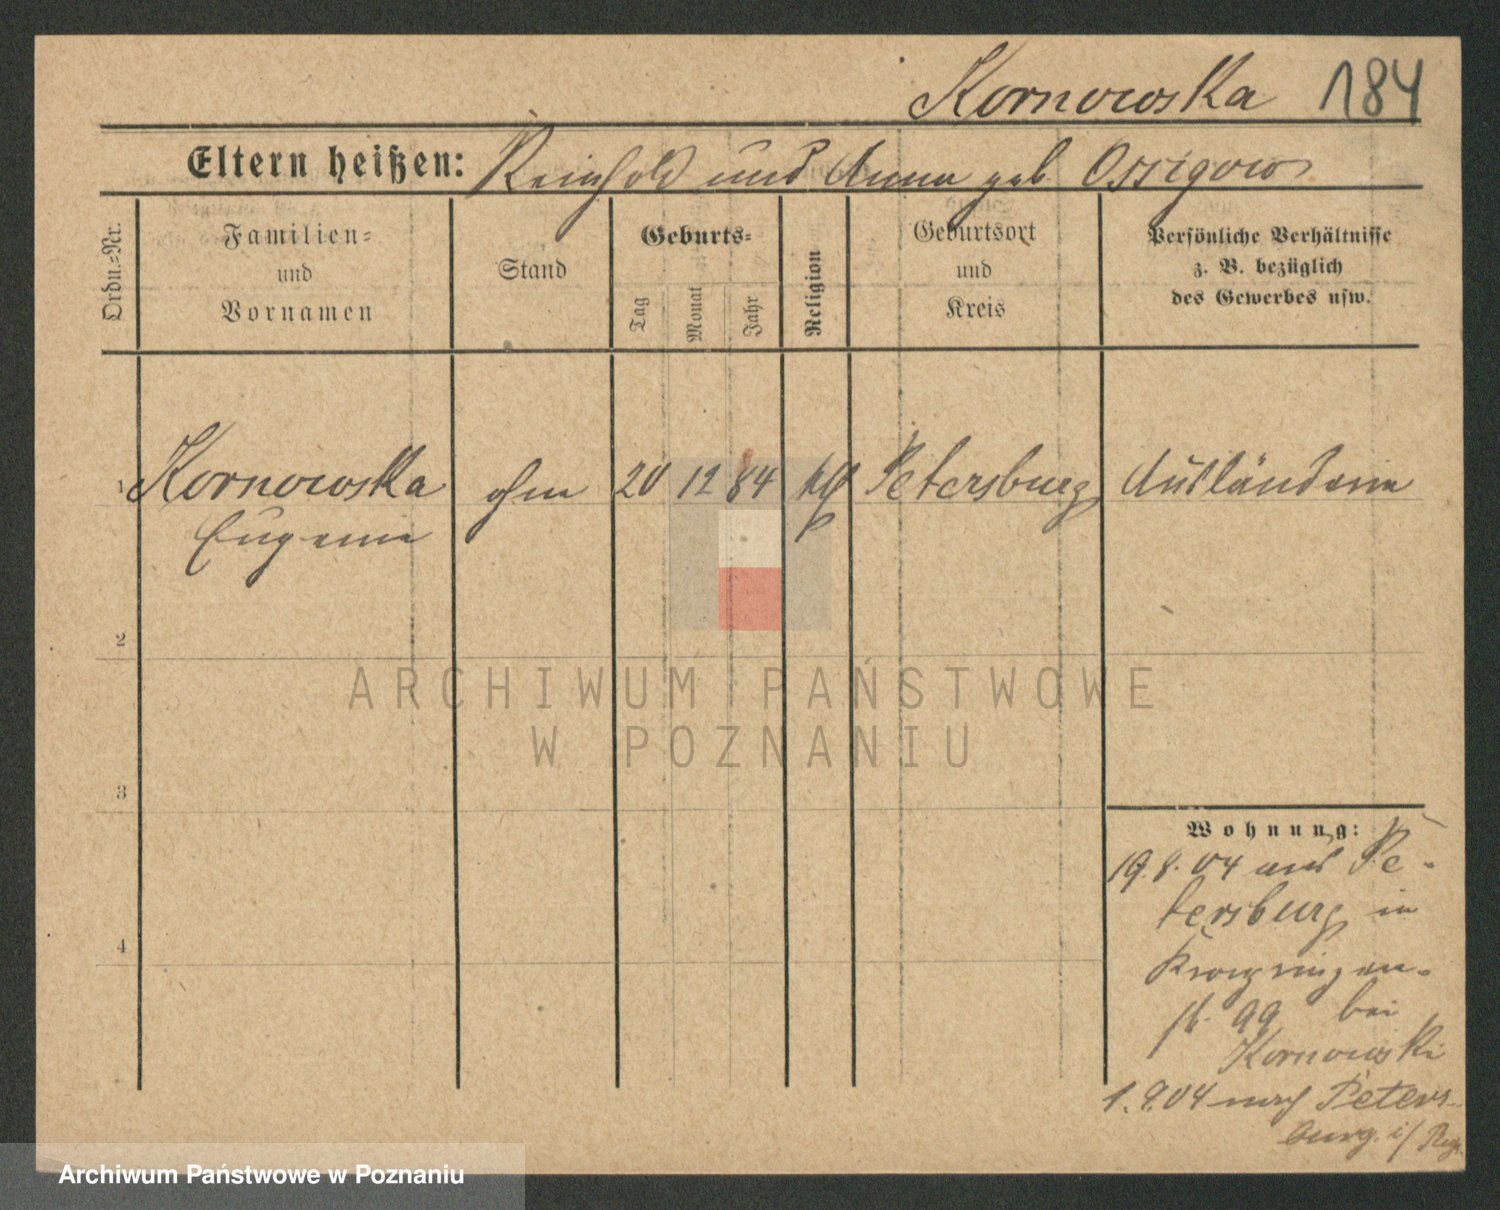 Kornowska 184
Eltern heißen: Reinhold und Anna geb Ossigow
Ordn.=Nr.
Familien=
und
Vornamen
Stand
Geburts=
Tag
Monat
Jahr
Religion
Geburtsort
und
Kreis
Persönliche Verhältnisse
z. B. bezüglich
des Gewerbes usw.
1 Kornowska ohne 20 12 84 Petersburg Ausländerin
Eugenie
2
3
4
Wohnung:
19.8.04 aus Pe-
tersburg in
Kronprinzen-
st. 99 bei
Kornowski
1.9.04 nach Peters-
burg. i/
ARCHIWUM PAŃSTWOWE
W POZNANIU
Archiwum Państwowe w Poznaniu